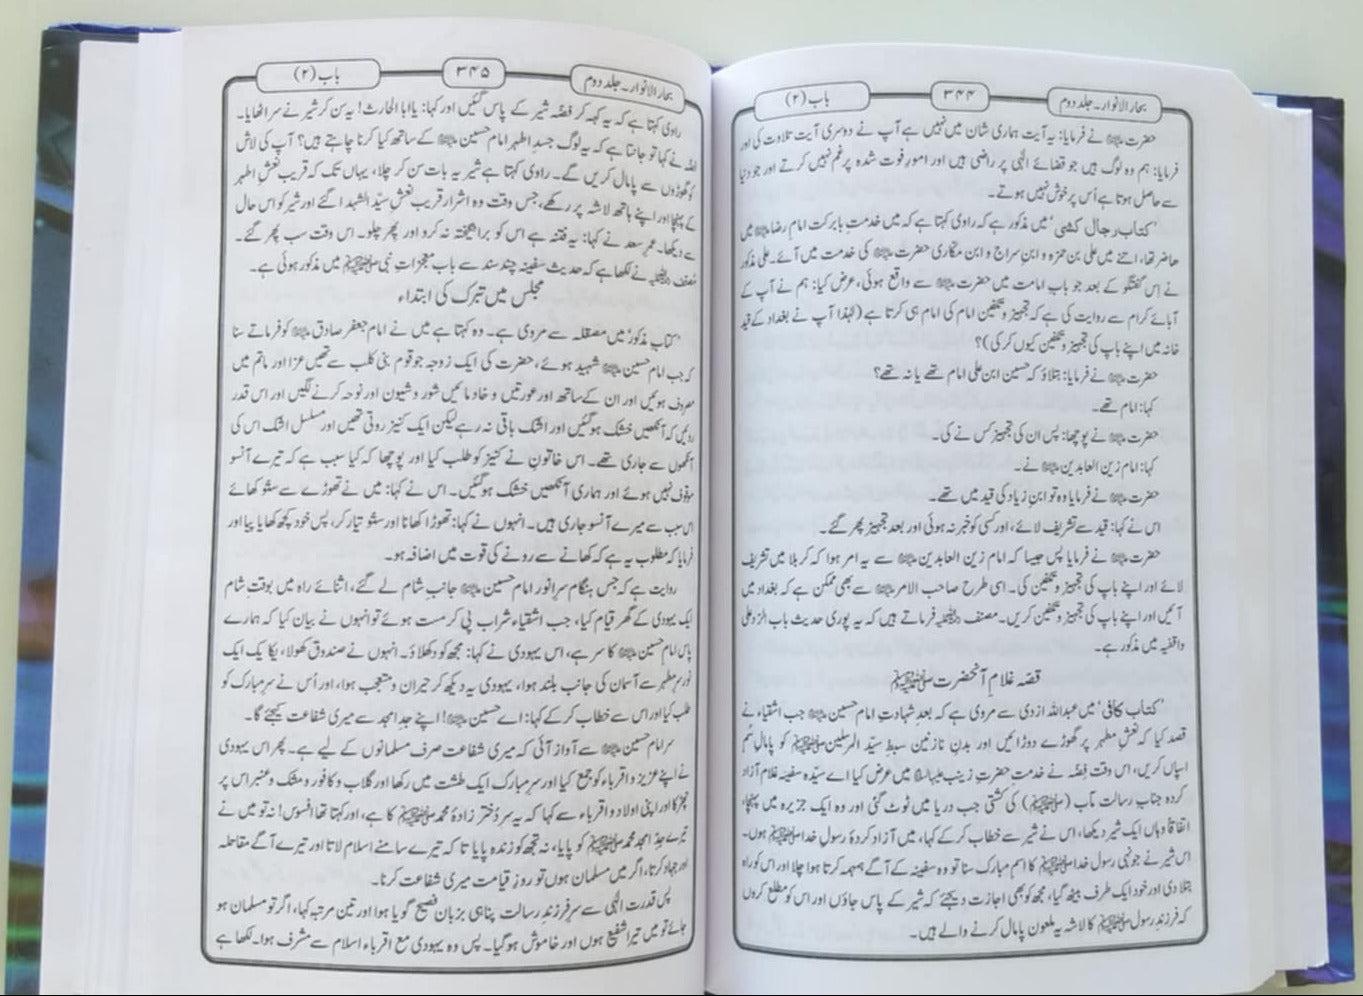 بحار الانوار۔ جلد دوم
۳۴۴
باب (۲)
حضرتؑ نے فرمایا: یہ آیت ہماری شان میں نہیں ہے آپ نے دوسری آیت تلاوت کی اور
فرمایا: ہم وہ لوگ ہیں جو قضائے الٰہی پر راضی ہیں اور امورِ فوت شدہ پر غم نہیں کرتے اور جو دنیا
سے حاصل ہوتا ہے اُس پر خوش نہیں ہوتے۔
’کتاب رجال کشی‘ میں مذکور ہے کہ راوی کہتا ہے کہ میں خدمتِ بابرکت امام رضاؑ میں
حاضر تھا، اتنے میں علی بن حمزہ و ابنِ سراج و ابن مکاری حضرتؑ کی خدمت میں آئے۔ علی مذکور
نے اِس گفتگو کے بعد جو باب امامت میں حضرتؑ سے واقع ہوئی، عرض کیا: ہم نے آپ کے
آبائے کرام سے روایت کی ہے کہ تجہیز و تکفین امام کی امام ہی کرتا ہے (لہٰذا آپ نے بغداد کے قید
خانہ میں اپنے باپ کی تجہیز و تکفین کیوں کر کی)؟
حضرتؑ نے فرمایا: بتلاؤ کہ حسین ابن علی امام تھے یا نہ تھے؟
کہا: امام تھے۔
حضرتؑ نے پوچھا: پس ان کی تجہیز کس نے کی۔
کہا: امام زین العابدینؑ نے۔
حضرتؑ نے فرمایا وہ تو ابنِ زیاد کی قید میں تھے۔
اس نے کہا: قید سے تشریف لائے، اور کسی کو خبر نہ ہوئی اور بعد تجہیز پھر گئے۔
حضرتؑ نے فرمایا پس جیسا کہ امام زین العابدینؑ سے یہ امر ہوا کہ کربلا میں تشریف
لائے اور اپنے باپ کی تجہیز و تکفین کی۔ اسی طرح صاحب الامرؑ سے بھی ممکن ہے کہ بغداد میں
آئیں اور اپنے باپ کی تجہیز و تکفین کریں۔ مصنف فرماتے ہیں کہ یہ پوری حدیث باب الرد علی
واقفیہ میں مذکور ہے۔
قصّہ غلامِ آنحضرت ﷺ
’کتاب کافی‘ میں عبداللہ ازدی سے مروی ہے کہ بعد شہادتِ امام حسینؑ جب اشقیاء نے
قصد کیا کہ نعشِ مطہر پر گھوڑے دوڑائیں اور بدنِ نازنین سبطِ سیّد المرسلین ﷺ کو پامالِ سُم
اسپاں کریں، اس وقت فضّہ نے خدمت حضرت زینب میں عرض کیا اے سیّدہ سفینہ غلام آزاد
کردہ جناب رسالت مآب (ﷺ) کی کشتی جب دریا میں ٹوٹ گئی اور وہ ایک جزیرہ میں پہنچا،
اتفاقاً وہاں ایک شیر دیکھا، اس نے شیر سے خطاب کر کے کہا، میں آزاد کردۂ رسولِ خدا ﷺ ہوں۔
اس شیر نے جونہی رسول خدا ﷺ کا اسم مبارک سنا تو وہ سفینہ کے آگے ہمہمہ کرتا ہوا چلا اور اس کو راہ
بتلا دی اور خود ایک طرف بیٹھ گیا، مجھ کو بھی اجازت دیجئے کہ شیر کے پاس جاؤں اور اس کو مطلع کروں
کہ فرزندِ رسول ﷺ کا لاشہ یہ ملعون پامال کرنے والے ہیں۔
بحار الانوار۔ جلد دوم
۳۴۵
باب (۲)
راوی کہتا ہے کہ یہ کہہ کر فضّہ شیر کے پاس گئیں اور کہا: یا ابا الحارث! یہ سن کر شیر نے سر اٹھایا۔
فضّہ نے کہا تو جانتا ہے کہ یہ لوگ جسدِ اطہر امام حسینؑ کے ساتھ کیا کرنا چاہتے ہیں؟ آپ کی لاش
کو گھوڑوں سے پامال کریں گے۔ راوی کہتا ہے شیر یہ بات سن کر چلا، یہاں تک کہ قریب نعشِ اطہر
کے پہنچا اور اپنے ہاتھ لاشہ پر رکھے، جس وقت وہ اشرار قریب نعشِ سیّد الشہدا گئے اور شیر کو اس حال
سے دیکھا۔ عمر سعد نے کہا: یہ فتنہ ہے اس کو برانگیختہ نہ کرو اور پھر چلو۔ اس وقت سب پھر گئے۔
مصنف نے لکھا ہے کہ حدیث سفینہ چند سند سے باب معجزاتِ نبی ﷺ میں مذکور ہوئی ہے۔
مجلس میں تبرک کی ابتداء
’کتاب مذکور‘ میں مصقلہ سے مروی ہے۔ وہ کہتا ہے میں نے امام جعفر صادقؑ کو فرماتے سنا
کہ جب امام حسینؑ شہید ہوئے، حضرت کی ایک زوجہ جو قوم بنی کلب سے تھیں عزا اور ماتم میں
مصروف ہوئیں اور ان کے ساتھ اور عورتیں و خادمائیں شور و شیون اور نوحہ کرنے لگیں اور اس قدر
روئیں کہ آنکھیں خشک ہوگئیں اور اشک باقی نہ رہے لیکن ایک کنیز روتی تھیں اور مسلسل اشک اس کی
آنکھوں سے جاری تھے۔ اس خاتون نے کنیز کو طلب کیا اور پوچھا کہ کیا سبب ہے کہ تیرے آنسو
موقوف نہیں ہوئے اور ہماری آنکھیں خشک ہوگئیں۔ اس نے کہا: میں نے تھوڑے سے ستّو کھائے
اس سبب سے میرے آنسو جاری ہیں۔ انہوں نے کہا: تھوڑا کھانا اور ستّو تیار کر، پس خود کچھ کھایا پیا اور
فرمایا کہ مطلوب یہ ہے کہ کھانے سے رونے کی قوت میں اضافہ ہو۔
روایت ہے کہ جس ہنگام سرِ انور امام حسینؑ جانبِ شام لے گئے، اثنائے راہ میں بوقتِ شام
ایک یہودی کے گھر قیام کیا، جب اشقیاء شراب پی کر مست ہوئے تو انہوں نے بیان کیا کہ ہمارے
پاس امام حسینؑ کا سر ہے، اس یہودی نے کہا: مجھ کو دکھلاؤ۔ انہوں نے صندوق کھولا، یکایک ایک
نور سرِ مطہر سے آسمان کی جانب بلند ہوا، یہودی یہ دیکھ کر حیران و متعجب ہوا، اور اُس نے سرِ مبارک کو
طلب کیا اور اس سے خطاب کر کے کہا: اے حسینؑ! اپنے جدِ امجد سے میری شفاعت کیجئے گا۔
سرِ امام حسینؑ سے آواز آئی کہ میری شفاعت صرف مسلمانوں کے لیے ہے۔ پھر اس یہودی
نے اپنے عزیز و اقرباء کو جمع کیا اور سرِ مبارک ایک طشت میں رکھا اور گلاب و کافور و مشک و عنبر اس پر
چھڑکا اور اپنی اولاد و اقرباء سے کہا کہ یہ سر دُختر زادۂ محمد ﷺ کا ہے، اور کہتا تھا افسوس! نہ تو میں نے
تیرے جدِ امجد محمد ﷺ کو پایا، نہ تجھ کو زندہ پایا تا کہ تیرے سامنے اسلام لاتا اور تیرے آگے مقاتلہ
اور جہاد کرتا، اگر میں مسلمان ہوں تو روزِ قیامت میری شفاعت کرنا۔
پس قدرت الٰہی سے سرِ فرزندِ رسالت پناہی بزبان فصیح گویا ہوا اور تین مرتبہ کہا، اگر تو مسلمان ہو
جائے تو میں تیرا شفیع ہوں اور خاموش ہوگیا۔ پس وہ یہودی مع اقرباء اسلام سے مشرف ہوا۔ لکھا ہے